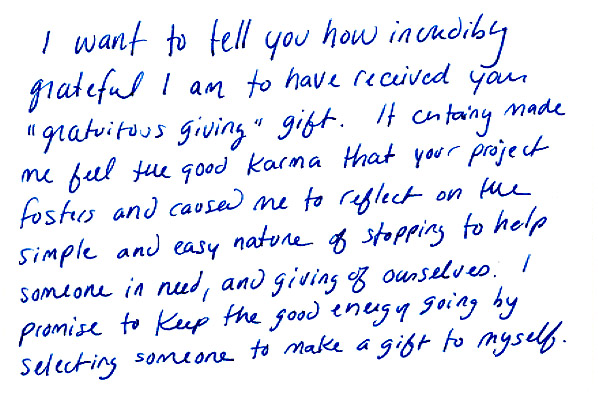 I want to tell you how incredibly
grateful I am to have received your
"gratuitous giving" gift. It certainly made
me feel the good karma that your project
fosters and caused me to reflect on the
simple and easy nature of stopping to help
someone in need, and giving of ourselves. I
promise to keep the good energy going by
selecting someone to make a gift to myself.